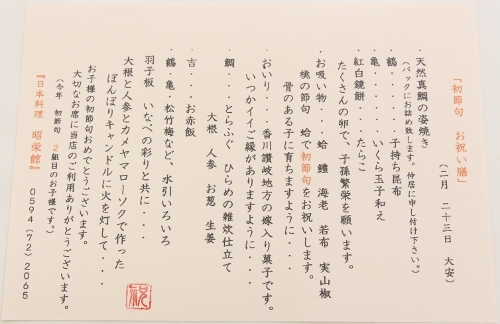 「初節句　お祝い膳」
（二月　二十三日　大安）
・天然真鯛の姿焼き
（パックにお詰め致します。仲居に申し付け下さい。）
鶴・・・・・・・子持ち昆布
亀・・・・・・いくら玉子和え
・紅白鏡餅・・・・たらこ
たくさんの卵で、子孫繁栄を願います。
・お吸い物・・・蛤　鱧　海老　若布　実山椒
桃の節句　蛤で初節句をお祝いします。
骨のある子に育ちますように・・・
・おいり・・・香川讃岐地方の嫁入り菓子です。
いつかイイご縁がありますように・・・
鯛・・・とらふぐ　ひらめの雑炊仕立て
大根　人参　お葱　生姜
吉・・・お赤飯
・鶴・亀・松竹梅など、水引いろいろ
羽子板　いなべの彩りと共に・・・・
大根と人参とカメヤマローソクで作った
ぼんぼりキャンドルに火を灯して・・・・
お子様の初節句おめでとうございます。
大切なお席に当店のご利用ありがとうございます。
（今年　初節句　2組目のお子様です。）
『日本料理　昭栄館』　0594(72)2065
祝